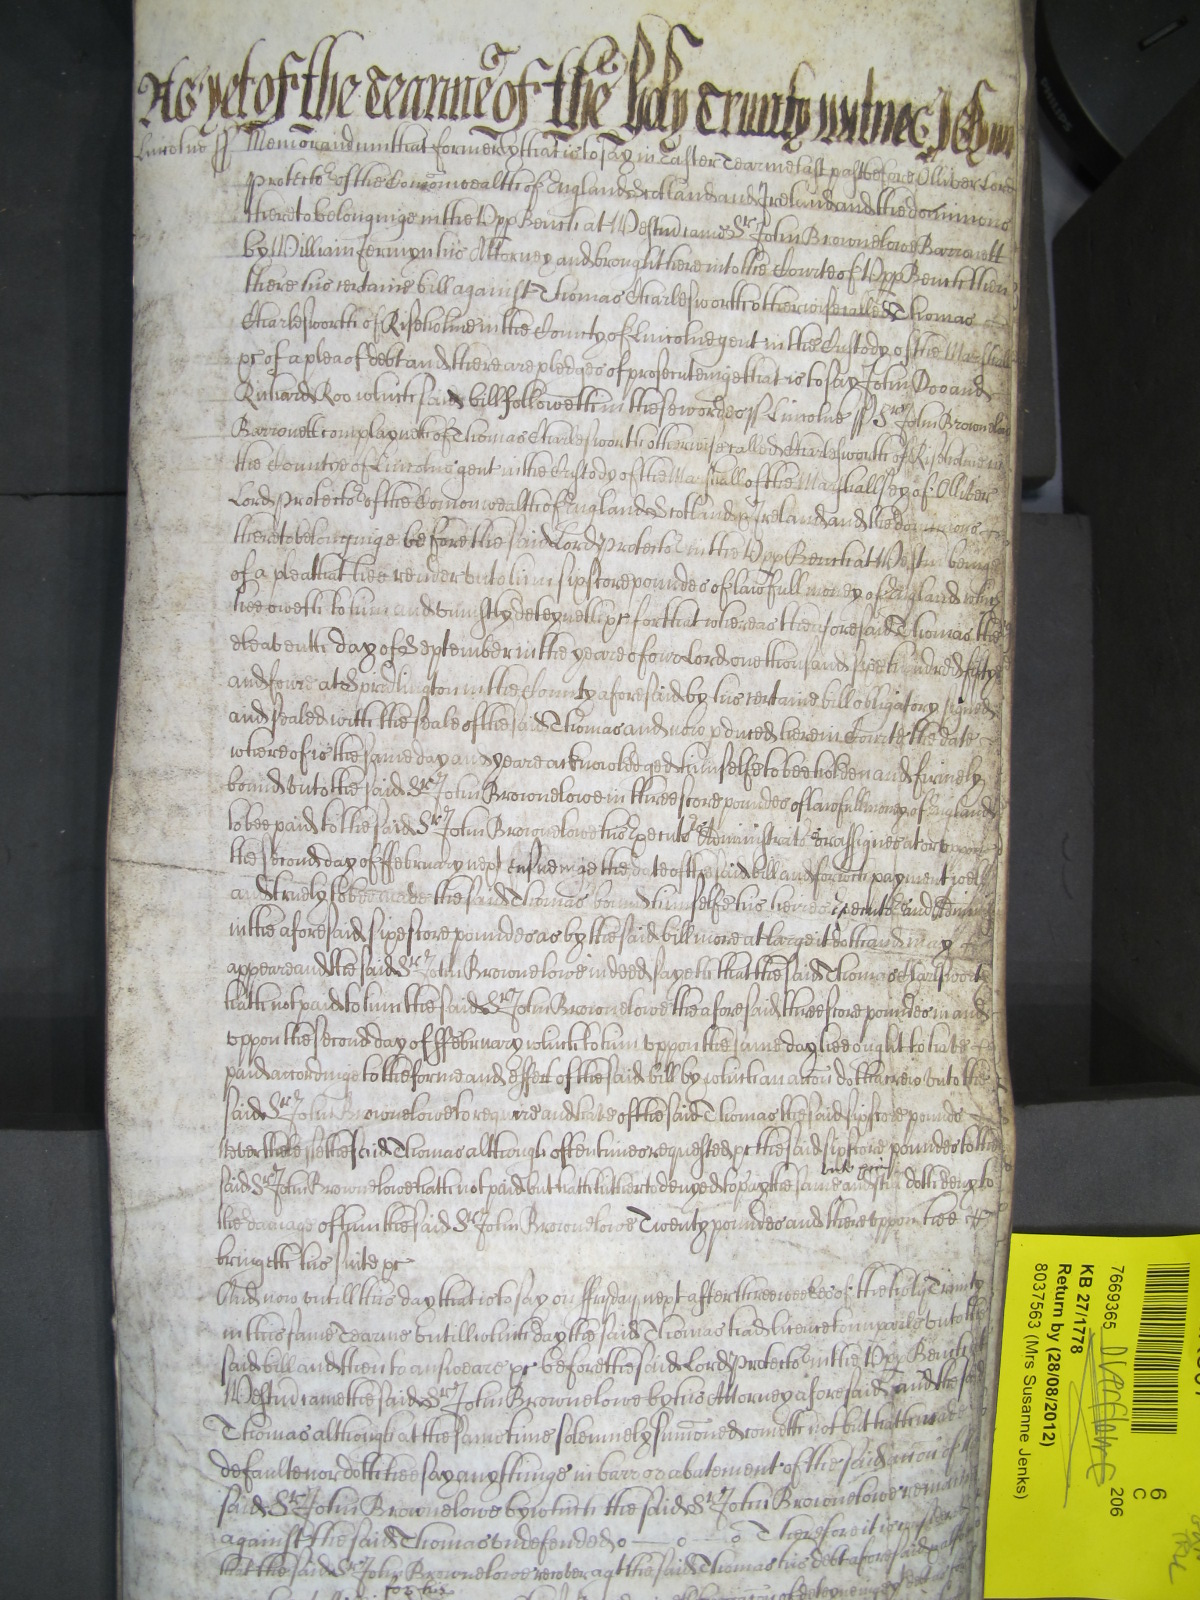 As yet of the Tearme of the holy Trinity witnes
Lincolne ss Memorandum that formerly that is to say in Easter Tearme last past before Olliver Lord
Protector of the Comonwealth of England Scotland and Ireland and the dominions
thereto belonginge in the Upp Bench at Westm came Sr John Brownelowe Barronett
by William Jermyn his Attorney and brought here into the Courte of Upp Bench then
there his certaine bill against Thomas Charlesworth otherwise called Thomas
Charlesworth of Riseholme in the County of Lincolne gent in the Custody of the Marshall
&c of a plea of debt and there are pledges of prosecuteinge that is to say John Doo and
Richard Roo which said bill followeth in these wordes ss Lincolne ss Sr John Brownelowe
Barronett complayneth of Thomas Charlesworth otherwise called Charlesworth of Riseholme in
the Countye of Lincolne gent in the Custody of the Marshall of the Marshallsey of Olliver
Lord Protector of the Comonwealth of England Scotland & Ireland and the dominions
thereto belonginge before the said Lord Protector in the Upp Bench at Westm beinge
of a plea that hee render unto him sixscore poundes of lawfull money of England which
hee oweth to him and uniustly deteyneth &c for that whereas the aforesaid Thomas the
eleaventh day of September in the yeare of our Lord one thousand sixe hundred fifty
and foure at Spridlington in the County aforesaid by his certaine bill obligatory signed
and sealed with the seale of the said Thomas and now pduced here in Courte the date
whereof is the same day and yeare acknowledged himselfe to bee holden and firmely
bound unto the said Sr John Brownelowe in threescore poundes of lawfull money of England
to bee paid to the said Sr John Brownelowe his executors Administrators or assignes at or upon
the second day of ffebruary next ensueinge the date of the said bill and for wch payment well
and truely to bee made the said Thomas bound himselfe his heires executors and
in the aforesaid sixescore poundes as by the said bill more at large it doth and may
appeare and the said Sr John Brownelowe in deed sayeth that the said Thomas Charlsworth
hath not paid to him the said Sr John Brownelowe the aforesaid threescore poundes in and
uppon the second day of ffebruary which to him uppon the same day hee ought to have
paid accordinge to the forme and effect of the said bill by which an accon doth accrew unto the
said Sr John Brownelowe to require and have of the said Thomas the said sixscore pounds
Neverthelesse the said Thomas although oftentimes requested &c the said sixscore poundes to the
said Sr John Brownelowe hath not paid but hath hitherto denyed to pay the same unto him and still doth deny to
the damage of him the said Sr John Brownelowe Twenty poundes and thereuppon hee
bringeth his suite &c
And now untill this day that is to say on ffriday next after three weekes of the holy Trinity
in this same Tearme untill which day the said Thomas had licence to imparle unto the
said bill and then to answeare &c before the said Lord Protector in the Upp Bench at
Westm came the said Sr John Brownelowe by his Attorney aforesaid and the said
Thomas although at the same time solemnely sumoned cometh not but hath made
default nor doth hee say anythinge in barr or abatement of the said accon of the
said Sr John Brownelowe by which the said Sr John Brownelowe
against the said Thomas undefended Therefore it is considered
that the said Sr John Brownelowe recover agt the said Thomas his debt aforesaid
7669365
KB 27/1778
Return by (28/08/2012)
8037563 (Mrs Susanne Jenks)
6
C
206